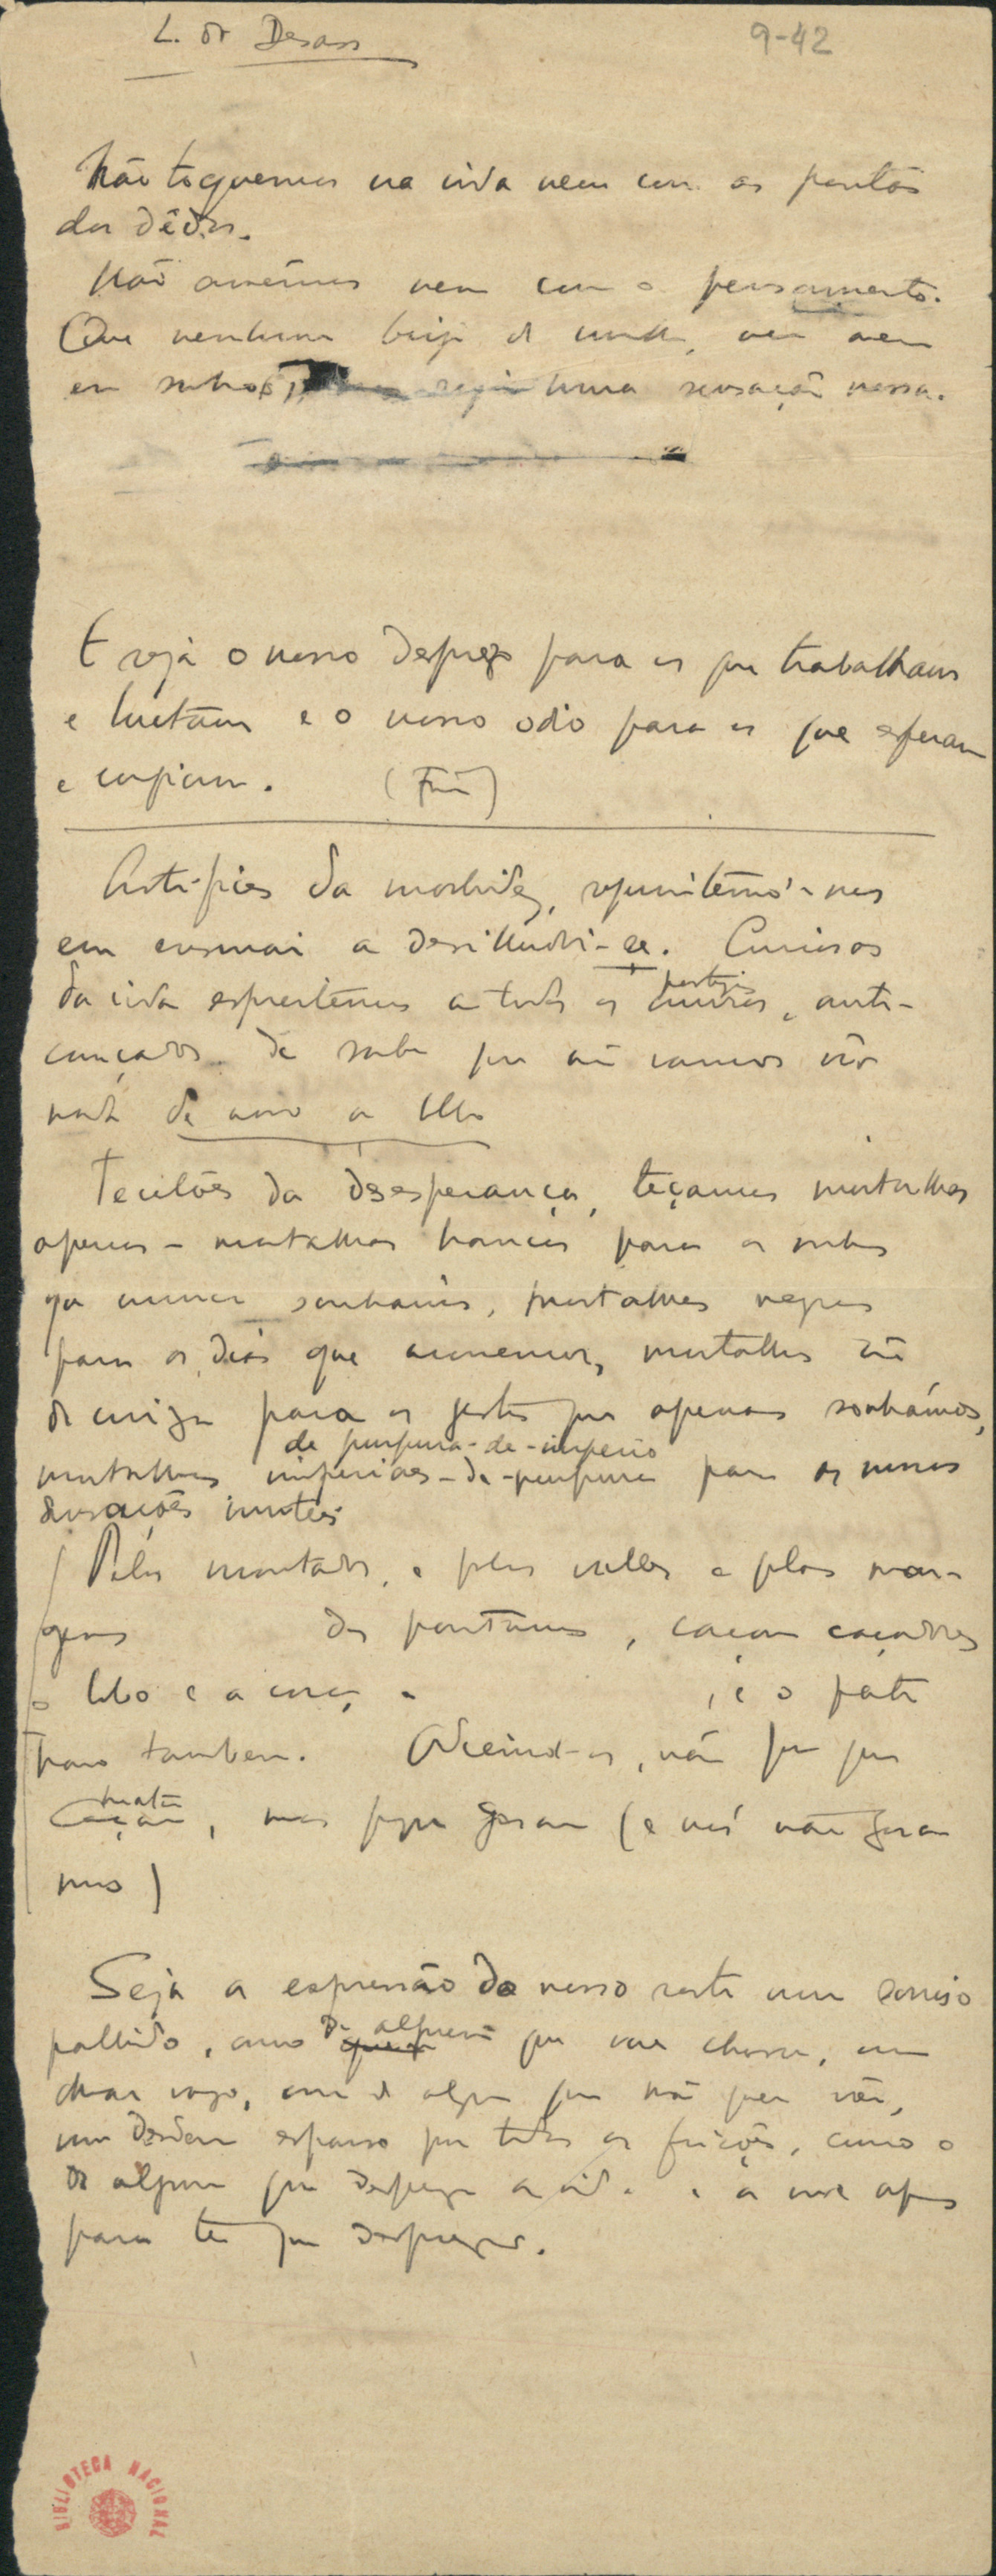 L. do Desass
9-42
Não toquemos na vida nem com as pontas
dos dêdos.
Não amêmos nem com o pensamento.
Que nenhum beijo de mulher, nem mesmo
em sonhos, seja uma sensação nossa.
E seja o nosso desprezo para os que trabalham
e luctam e o nosso odio para os que esperam
e confiam. (Fim)
Artifices da morbidez, requintêmo-nos
em ensinar a desilludir-se. Curiosos
da vida espreitemos a todos os muros, ante-
postigos
cançados de saber que não vamos vêr
nada de novo ou bello
Tecelões da desesperança, teçamos mortalhas
apenas – mortalhas brancas para os sonhos
que nunca sonhámos, mortalhas negras
para os dias que morremos, mortalhas côr
de cinza para os gestos que apenas sonhámos,
de purpura-de-imperio
mortalhas imperiaes-de-purpura para as nossas
sensações inuteis
Pelos montados e pelos valles e pelas mar-
gens dos pantanos, caçam caçadores
o lobo e a corça e , e o pato
bravo tambem. Odeiemol-os, não porque
matam
caçam, mas porque gosam (e nós não gosa-
mos)
Seja a expressão do nosso rosto um sorriso
pallido, como de alguem que vae chorar, um
quem
olhar vago, como de alguem que não quer vêr,
um desdem esparso por todas as feições, como o
de alguem que despreza a vida e a vive apenas
para ter que desprezar.
BIBLIOTECA NACIONAL